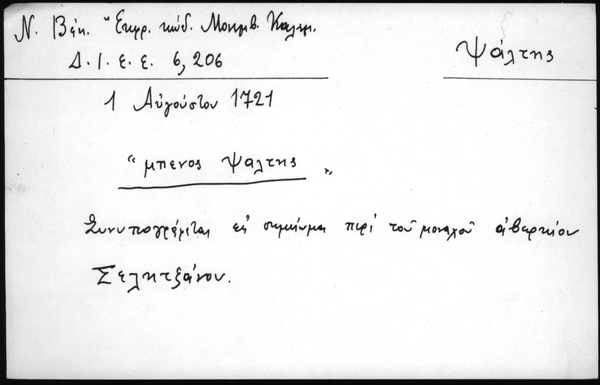 Ν. Βέη. "Εκφρ. κώδ. Μονεμβ. Καλαμ.
Δ.Ι.Ε.Ε. 6, 206
Ψάλτης
1 Αὐγούστου 1721
"μπενος Ψαλτης"
Συνυπογράφεται εἰς σημείωμα περί τοῦ μοναχοῦ ἀβερκίου
Σελητζάνου.